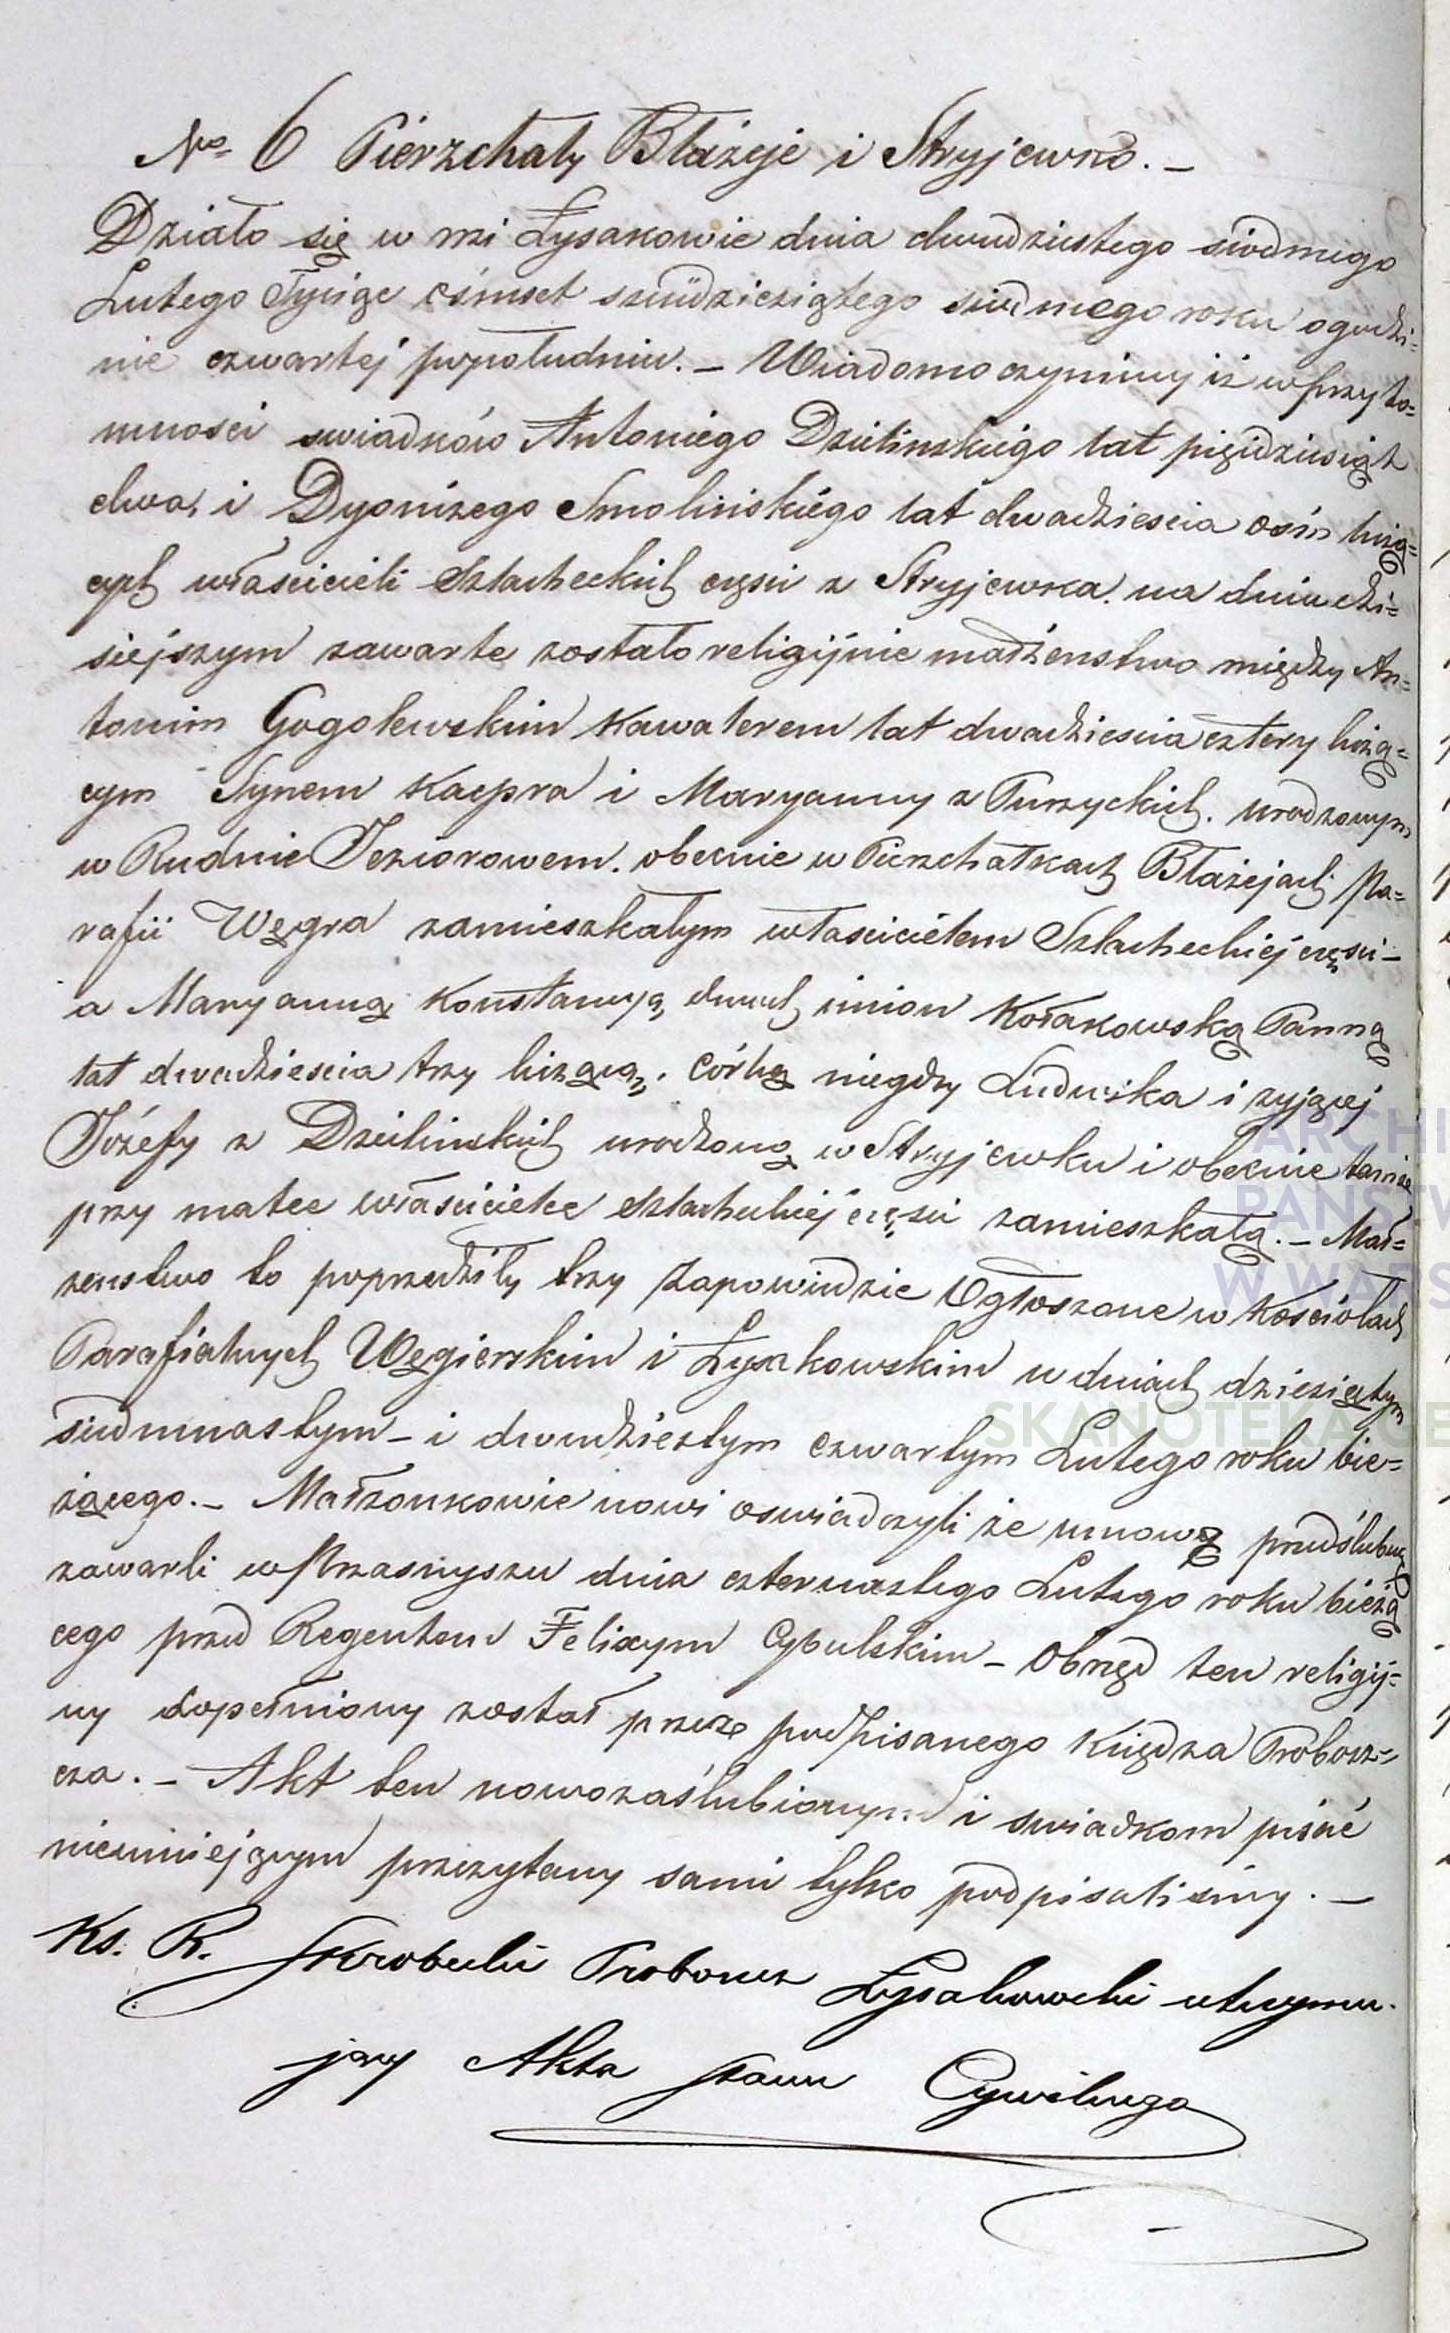 No 6 Pierzchały Błażeje i Stryjewko. –
Działo się w wsi Łysakowie dnia dwudziestego siodmego
Lutego Tysiąc ośmset sześdziesiątego siodmego roku o godzi=
nie czwartej popołudniu. – Wiadomo czyniemy iż w przyto=
mnosci swiadków Antoniego Dzilinskiego lat pięidziesiąt
dwa, i Dyonizego Smolinskiego lat dwadziescia osm liczą=
cych własciceli Szlacheckich częsci z Stryjewka. na dniu dzi=
siejszym zawarte zostało religijnie małżenstwo między An=
tonim Gogolewskim Kawalerem lat dwadziescia cztery liczą=
cym Synem Kacpra i Maryanny z Turzyckich. urodzonym
w Rudnie Jeziorowem. obecnie w Pierzchałkach Błażejach Pa=
rafii Węgra zamieszkałym własciecielem Szlacheckiej częsci –
a Maryanną Konstancyą dwuch imion Kołakowską Panną
lat dwadziescia trzy liczącą, córką niegdy Ludwika i zyjącej
Józefy z Dzilinskich urodzoną w Stryjewku i obecnie tamże
przy matce własciecielce szlacheckiej częsci zamieszkałą. – Mał=
zenstwo to poprzedziły trzy Zapowiedzie Ogłoszone w Kosciołach
Parafialnych Węgierskim i Łysakowskim w dniach dziesiątym
siedmnastym – i dwudziestym czwartym Lutego roku bie=
żącego. – Małzonkowie nowi oswiadczyli że umowę przedślubną
zawarli w Przasnyszu dnia czternastego Lutego roku bieżą
cego przed Regentem Felixym Cybulskim – Obrzęd ten religij=
ny dopełniony został przez podpisanego Księdza Probosz=
cza. – Akt ten nowozaślubionym i swiadkom pisać
nieumiejącym przeczytany sami tylko podpisalismy. –
Ks. R. Skrobecki Proboszcz Łysakowski utrzymu.
jący Akta Stanu Cywilnego
ARCHI
PAŃSTW
W WARS
SKANOTEKA.GE